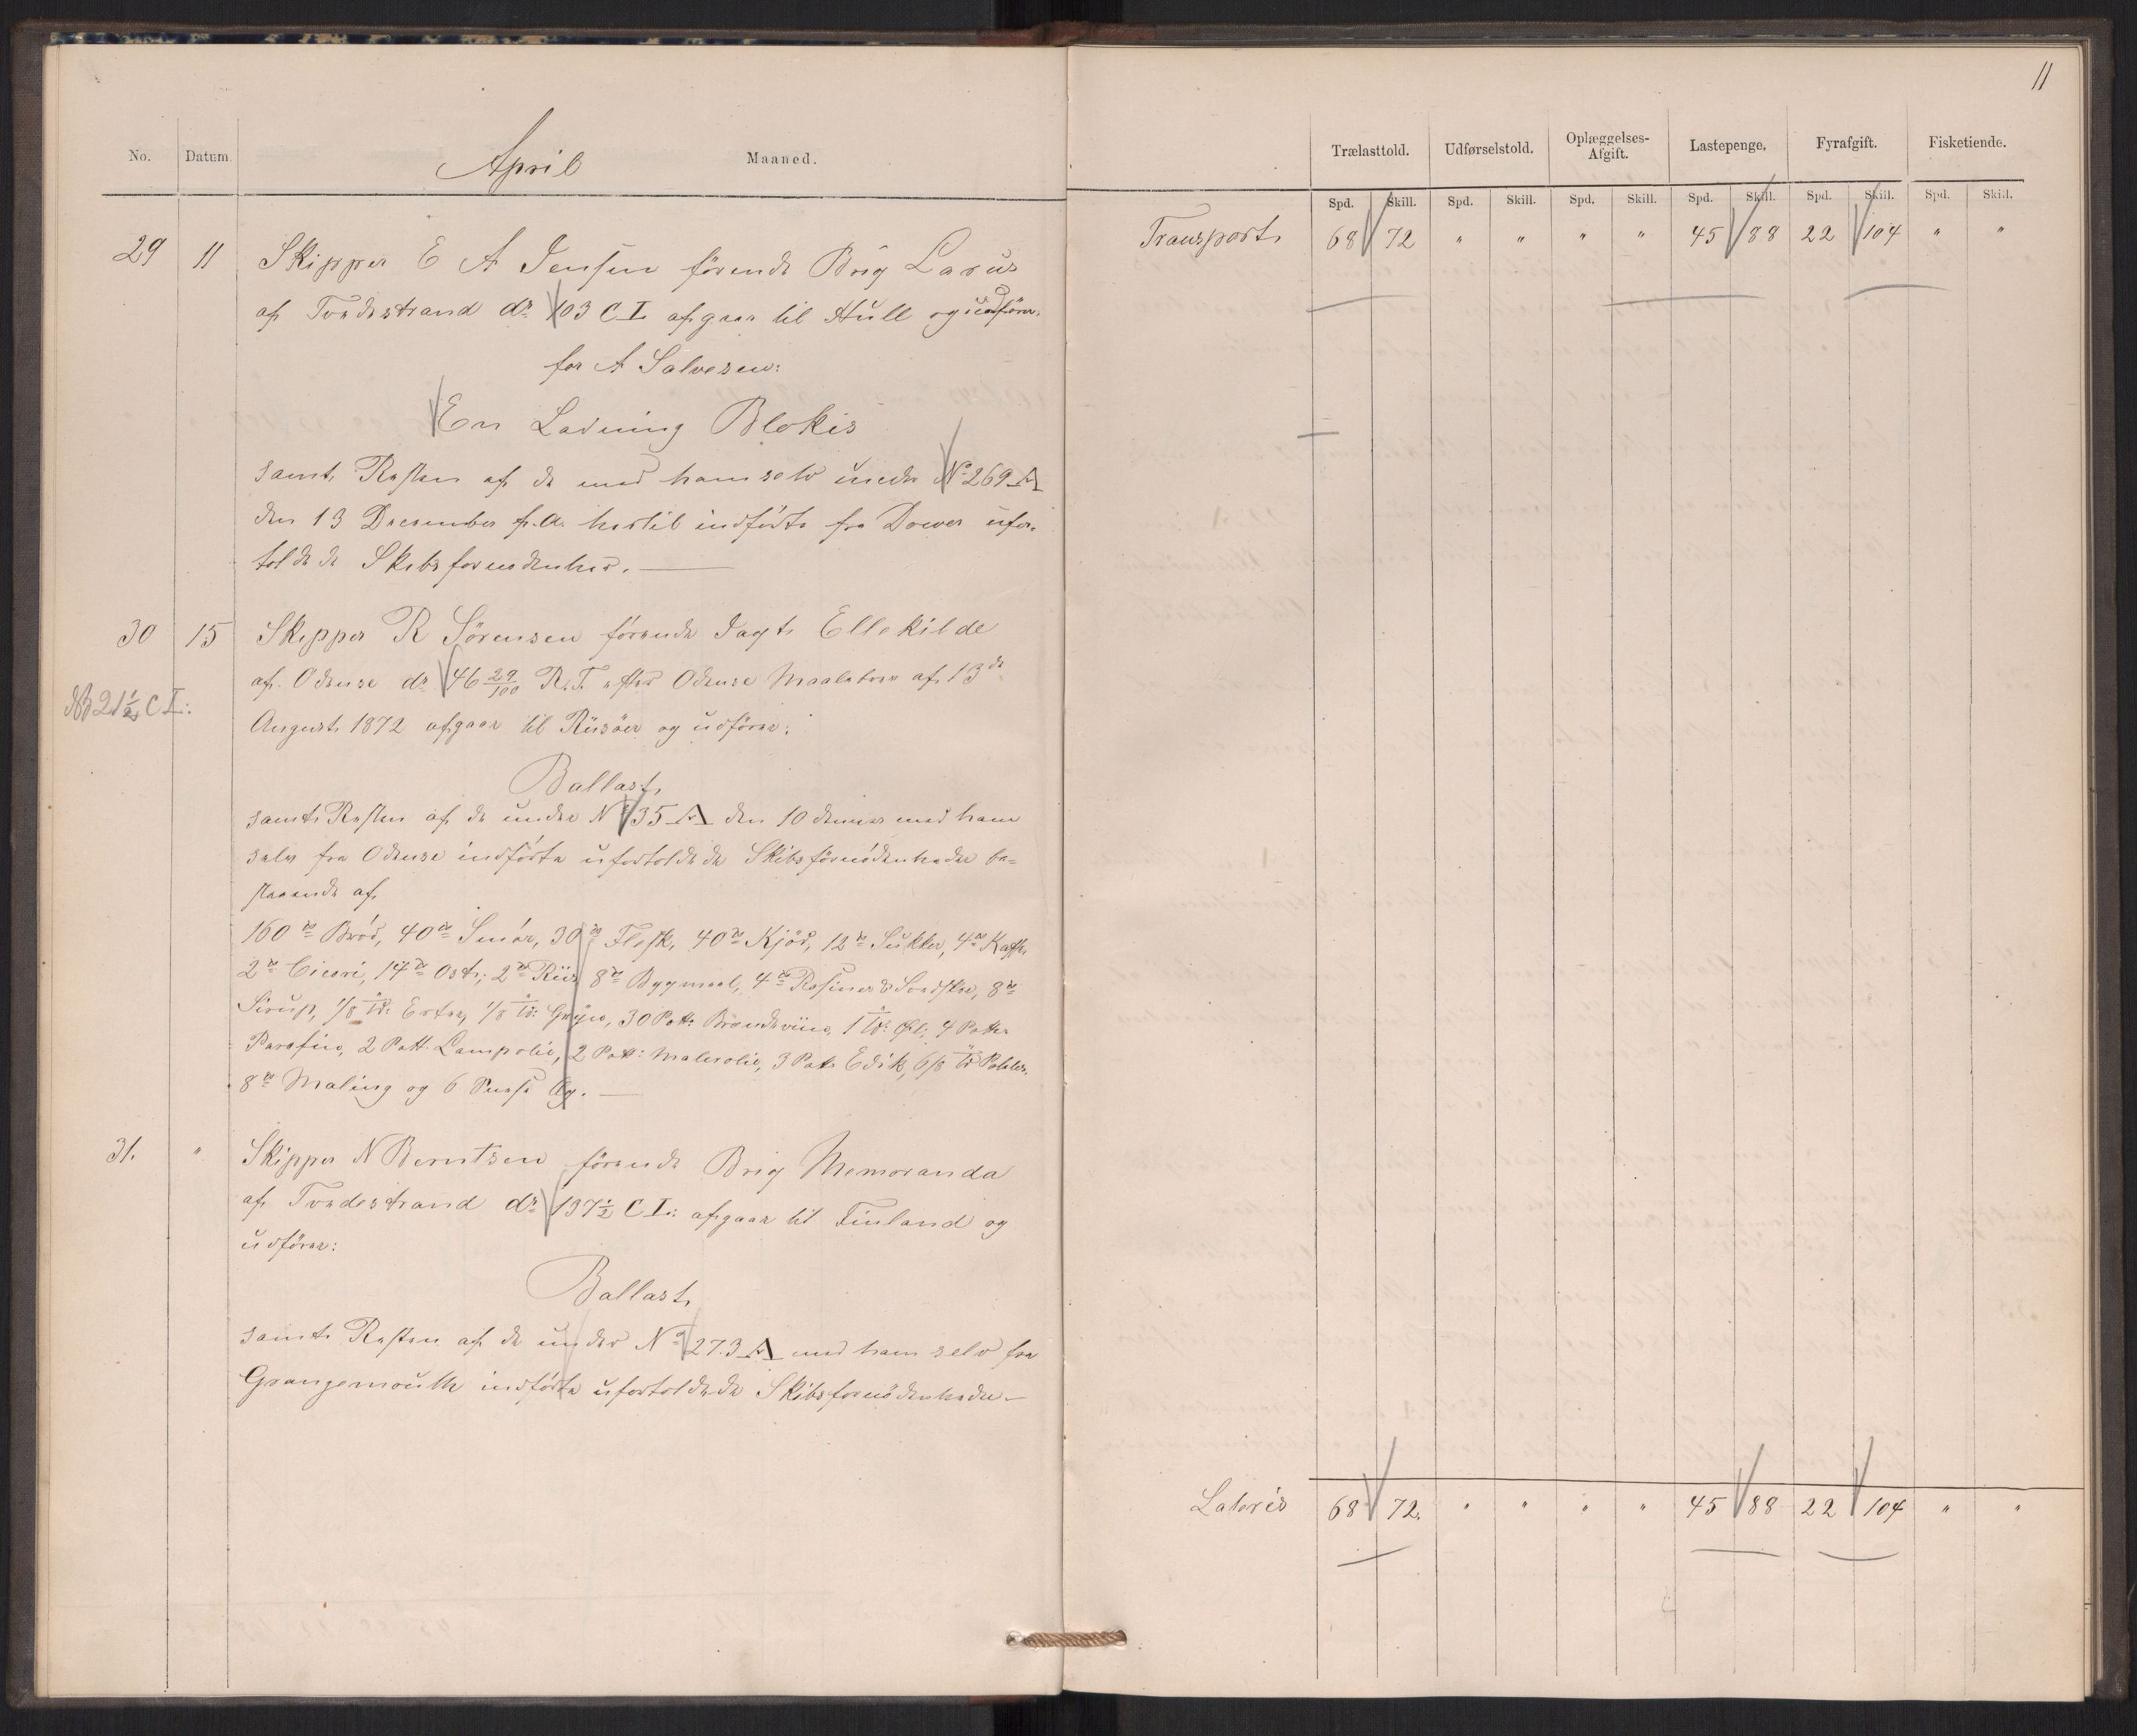 11
No. Datum. April Maaned.
Trælasttold. Udførselstold. Oplæggelses-Afgift. Lastepenge. Fyrafgift. Fisketiende.
Spd. Skill. Spd. Skill. Spd. Skill. Spd. Skill. Spd. Skill. Spd. Skill.
Transport 68 72 " " " " 45 88 22 104 " "
29 11 Skipper E A Jensen förende Brig Larus
af Tvedestrand dr 103 C L afgaar til Hull og udförer
for A Salvesen:
En Ladning Blokis
samt Resten af de med ham selv under No 269 A
den 13 December f. A. hertil indförte fra Dower ufor-
toldede Skibsfornödenhed.
30 15 Skipper R Sörensen förende Jagt Ellekilde
af Odense dr 46 29/100 R.T. efter Odense Maalebrev af 13de
21 1/2 C L:
August 1872 afgaar til Risöer og udförer:
Ballast
samt Resten af de under No 35 A den 10 dennes med ham
selv fra Odense indförte ufortoldede Skibsfornödenheder be-
staaende af
160 ℔ Bröd, 40 ℔ Smör, 30 ℔ Flesk, 40 ℔ Kjöd, 12 ℔ Sukker, 4 ℔ Kaffe
2 ℔ Cicori, 14 ℔ Ost, 2 ℔ Riis, 8 ℔ Bygmeel, 4 ℔ Rosiner & Svedsker, 8 ℔
Sirup, 1/8 Td: Erter, 1/8 Td: Gryn, 30 Pott: Brændeviin, 1 Td: Öl, 4 Potter
Parafin, 2 Pott. Lampolie, 2 Pott: Malerolie, 3 Pott Edik, 6/8 Td Poteter,
8 ℔ Maling og 6 Snese Æg.
31. " Skipper N Berntsen förende Brig Memoranda
af Tvedestrand dr 137 1/2 C L: afgaar til Finland og
udförer:
Ballast
samt Resten af de under No 273 A med ham selv fra
Grangemouth indförte ufortoldede Skibsfornödenheder
Lateris 68 72. " " " " 45 88 22 104 " "